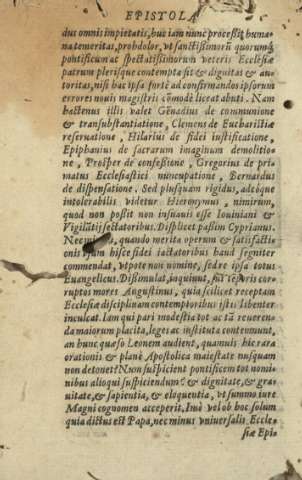 EPISTOLA
dus omnis impietatis, huc iam nunc processit huma-
na temeritas, proh dolor, vt sanctissimorũ quorumq́;
pontificum ac spectatissimorum veteris Ecclesiæ
patrum plerisque contempta sit & dignitas & au-
toritas, nisi hac ipsa fortè ad confirmandos ipsorum
errores noui magistri cõmodè liceat abuti. Nam
hactenus illis valet Genadius de communione
& transubstantiatione, Clemens de Eucharistiæ
reseruatione, Hilarius de fidei iustificatione,
Epiphanius de sacrarum imaginum demolitio-
ne, Prosper de confessione, Gregorius de pri
matus Ecclesiastici nuncupatione, Bernardus
de dispensatione. Sed plusquam rigidus, adeóque
intolerabilis videtur Hieronymus, nimirum,
quod non possit non inuisus esse Iouiniani &
Vigilãtij sectatoribus. Displicet passim Cyprianus.
Nec quando merita operum & satisfacti-
onis vsum hisce fidei iactatoribus haud segniter
commendat, vtpote non nomine, sed re ipsa totus
Euangelicus. Dissimulat, inquiunt, sui tẽporis cor-
ruptos mores Augustinus, quia scilicet receptam
Ecclesiæ disciplinam contemptoribus istis libenter
inculcat. Iam qui pari modestia tot ac tã reueren-
da maiorum placita, leges ac instituta contemnunt,
an hunc quæso Leonem audient, quamuis hic rara
orationis & planè Apostolica maiestate nusquam
non detonet? Nũ suspicient pontificem tot nomi-
nibus alioqui suspiciendum? & dignitate, & gra-
uitate, & sapientia, & eloquentia, vt summo iure
Magni cognomen acceperit. Imò vel ob hoc solum
quia dictus est Papa, nec minus vniuersalis Eccle-
siæ Epi-